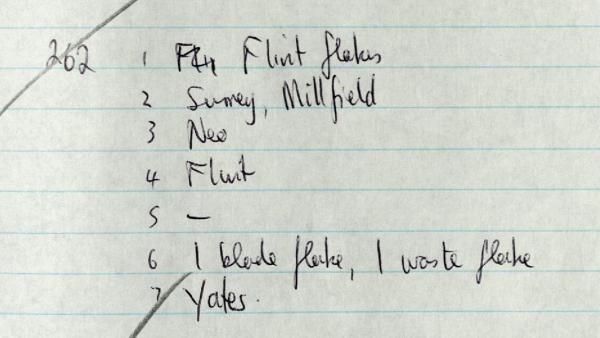 262 1 Flint flakes
2 Surrey, Millfield
3 Neo
4 Flint
5 —
6 1 blade flake, 1 waste flake
7 Yates.